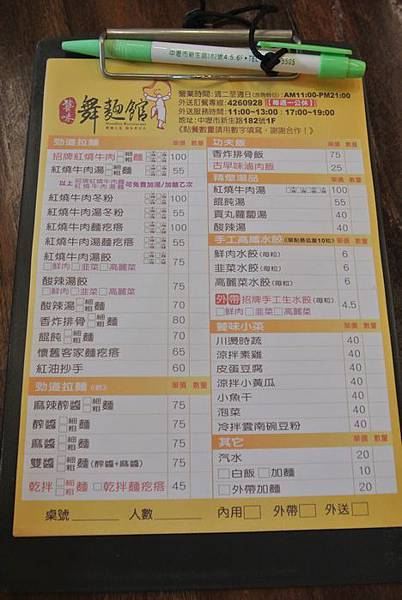 中壢市新生路182號4.5.6F
饕味
舞麵館
營業時間：週二至週日 AM11:00-PM21:00
外送訂餐專線：4260928【每週一公休】
外送服務時間：11:00~13:00；17:00~19:00
地址：中壢市新生路182號1F
《點餐數量請用數字填寫，謝謝合作！》
勁道拉麵 單價 數量
招牌紅燒牛肉□細粗麵 100
紅燒牛肉湯□細粗麵 55
可免費加湯/加麵乙次
紅燒牛肉冬粉 100
紅燒牛肉湯冬粉 55
紅燒牛肉麵疙瘩 100
紅燒牛肉湯麵疙瘩 55
紅燒牛肉湯餃 75
□鮮肉□韭菜□高麗菜
酸辣湯餃 75
□鮮肉□韭菜□高麗菜
酸辣湯□細粗麵 70
香炸排骨□細粗麵 80
餛飩□細粗麵 70
懷舊客家麵疙瘩 65
紅油抄手 60
勁道拉麵(乾) 單價 數量
麻辣醡醬□細粗麵 75
醡醬□細粗麵 75
麻醬□細粗麵 75
雙醬□細粗麵(醡醬+麻醬) 75
乾拌□細粗麵 □乾拌麵疙瘩 45
功夫飯 單價 數量
香炸排骨飯 75
古早味滷肉飯 25
精燉湯品 單價 數量
紅燒牛肉湯 100
餛飩湯 50
貢丸蘿蔔湯 40
酸辣湯 40
手工高纖水餃(單點最低量10粒) 單價 數量
鮮肉水餃(每粒) 6
韭菜水餃(每粒) 6
高麗菜水餃(每粒) 6
外帶 招牌手工生水餃(每粒) 4.5
□鮮肉□韭菜□高麗菜
饕味小菜 單價 數量
川燙時蔬 40
涼拌素雞 40
皮蛋豆腐 40
涼拌小黃瓜 40
小魚干 40
泡菜 40
冷拌雲南碗豆粉 40
其它 單價 數量
汽水 20
□白飯 □加麵 10
□外帶加麵 20
桌號______ 人數______ 內用□ 外帶□ 外送□